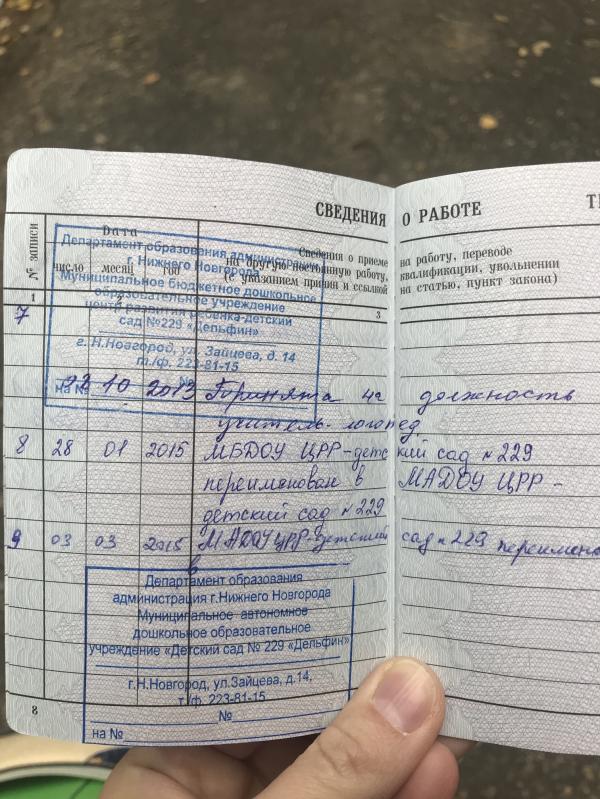 СВЕДЕНИЯ О РАБОТЕ
№ записи
Дата
число
месяц
год
Сведения о приеме на работу, переводе
на другую постоянную работу, квалификации, увольнении
(с указанием причин и ссылкой на статью, пункт закона)
1
3
Департамент образования администрации
г. Нижнего Новгорода
Муниципальное бюджетное дошкольное
образовательное учреждение
центр развития ребенка-детский
сад №229 «Дельфин»
г. Н.Новгород, ул. Зайцева, д. 14
т./ф. 223-81-15
на №
7
22 10 2013 на должность
учитель-логопед
8 28 01 2015 МБДОУ ЦРР-детский сад №229
переименован в МАДОУ ЦРР-
детский сад №229
9 03 03 2015 МАДОУ ЦРР-детский сад №229
в
Департамент образования
администрация г.Нижнего Новгорода
Муниципальное автономное
дошкольное образовательное
учреждение «Детский сад № 229 «Дельфин»
г.Н.Новгород, ул.Зайцева, д.14,
т./ф. 223-81-15
№
на №
8